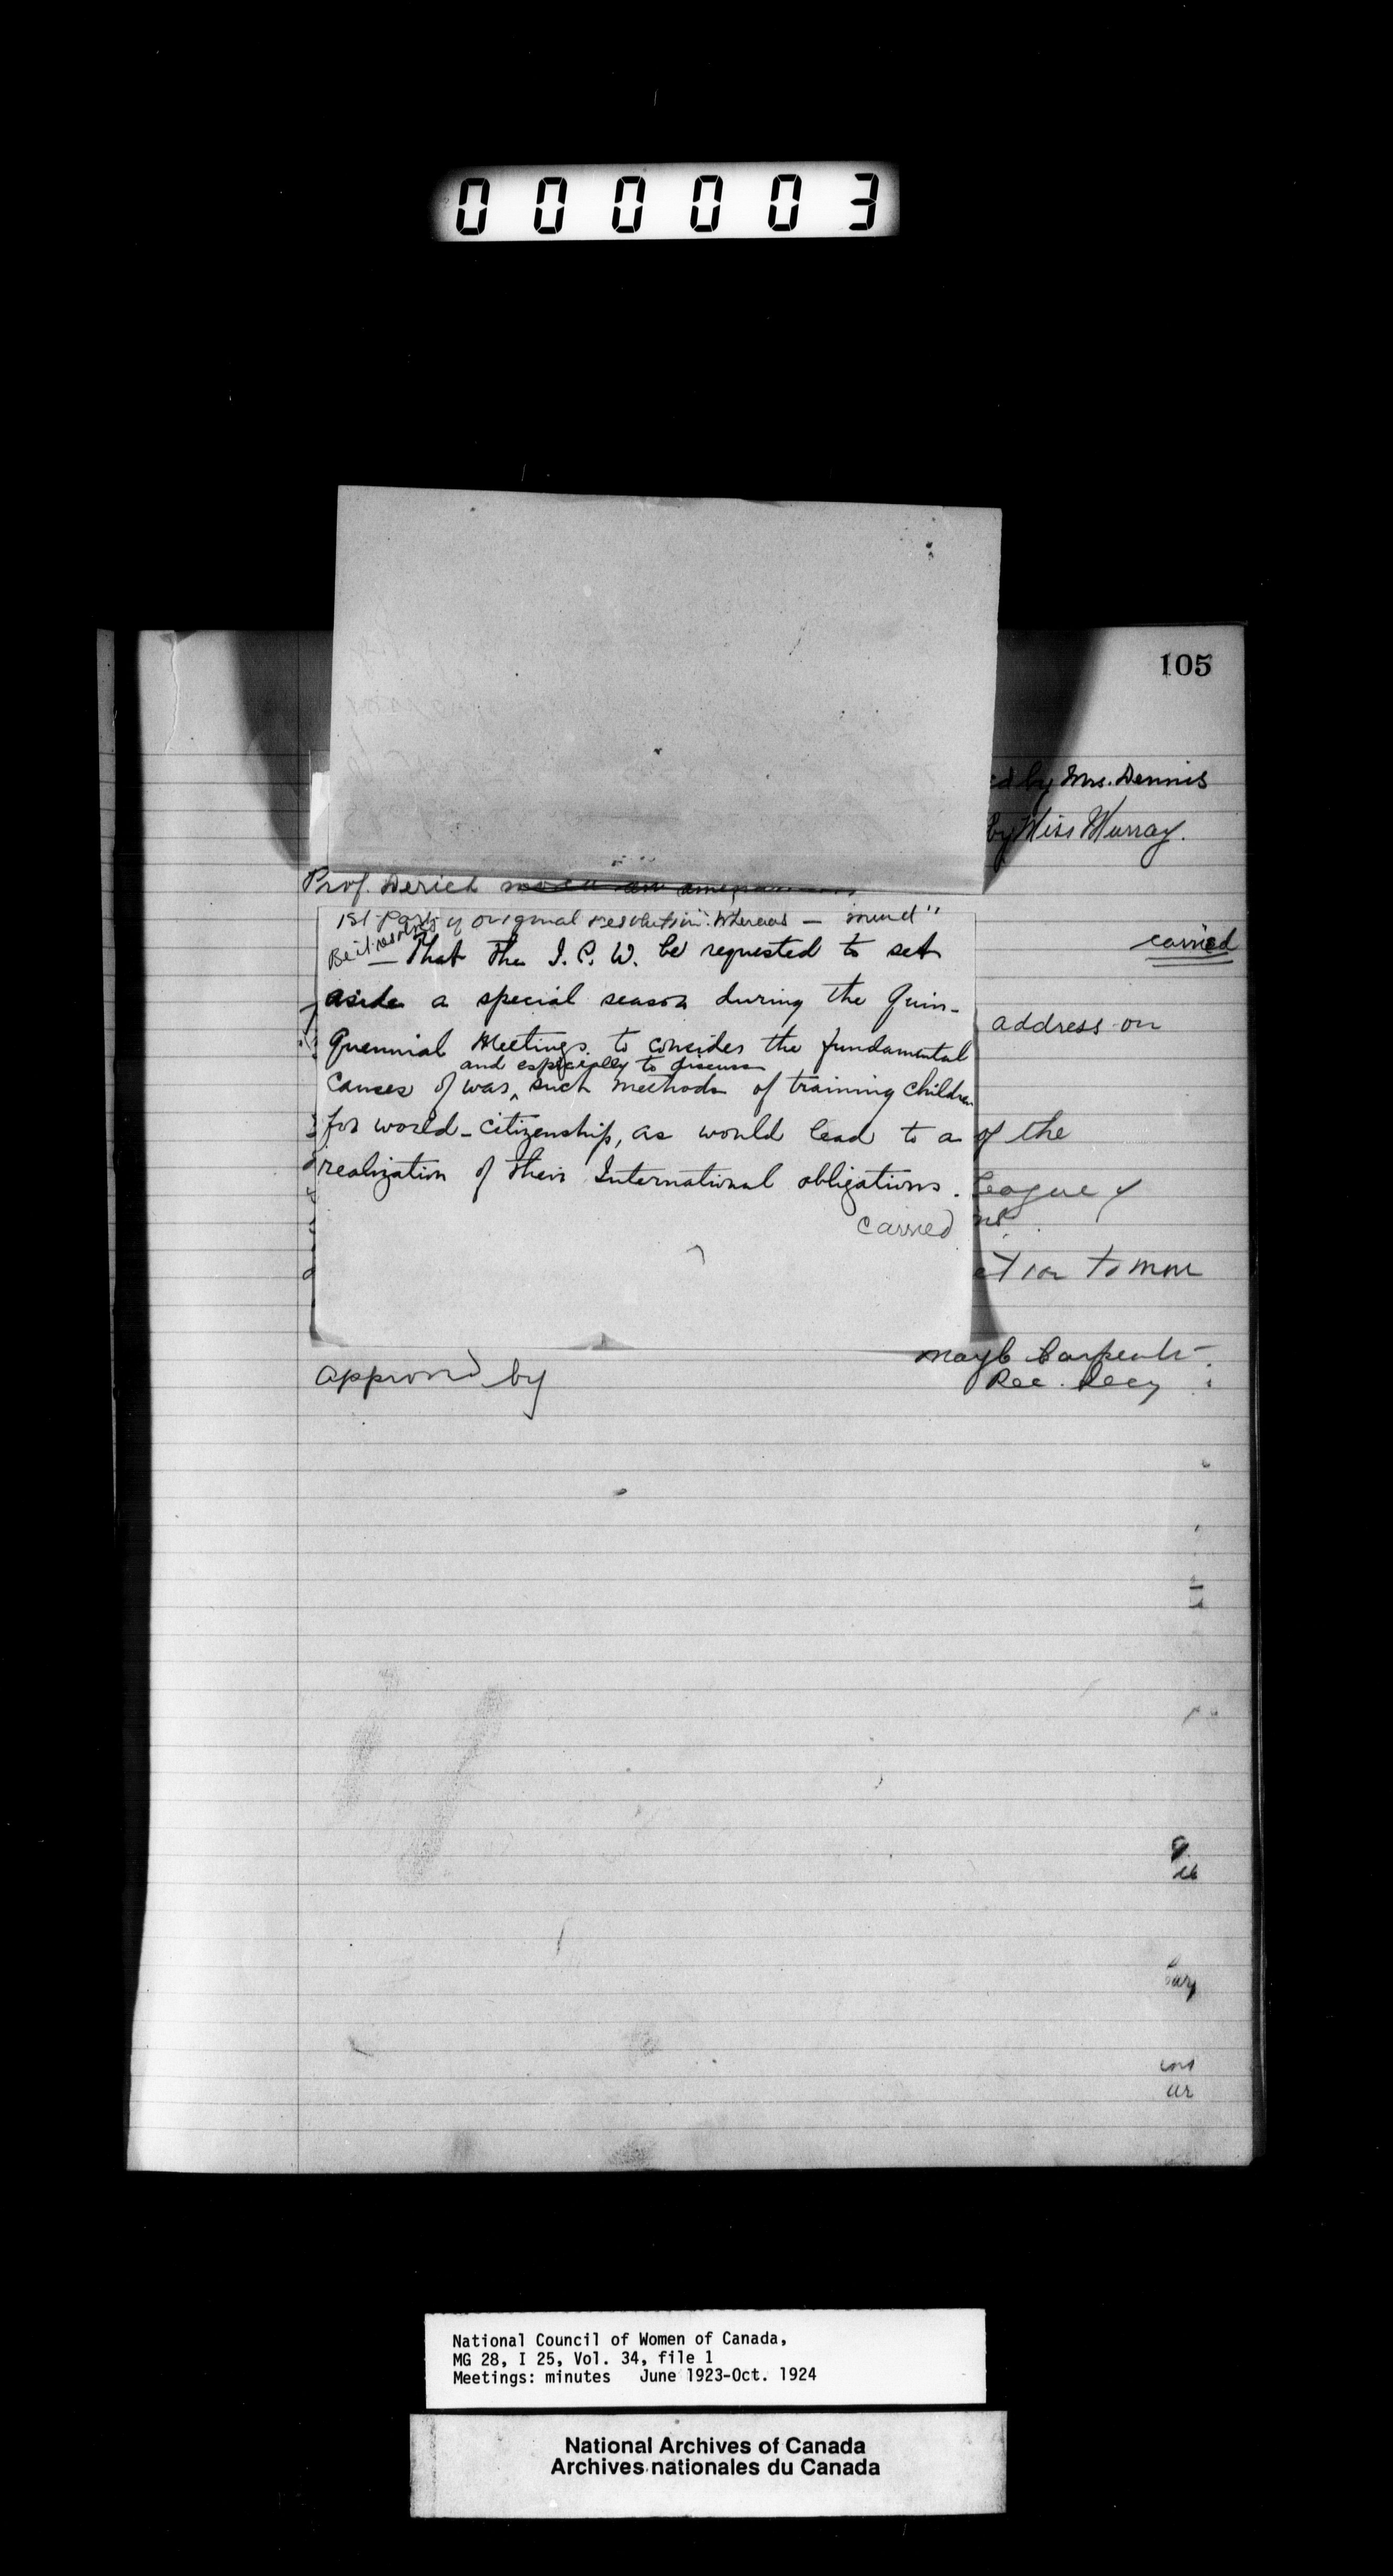 000003
105
ed by Mrs. Dennis
by Miss Murray.
Prof. Derick moved an
1st Part of original resolution "Whereas — mind"
Be it resolved
— That the I. C. W. be requested to set
aside a special season during the Quin-
quennial Meetings. to consider the fundamental
and especially to discuss
causes of war, such methods of training children
for world-citizenship, as would lead to a
realization of their International obligations.
carried
carried
address on
of the
League of
to
approved by
Rec. Secy
National Council of Women of Canada,
MG 28, I 25, Vol. 34, file 1
Meetings: minutes June 1923-Oct. 1924
National Archives of Canada
Archives nationales du Canada